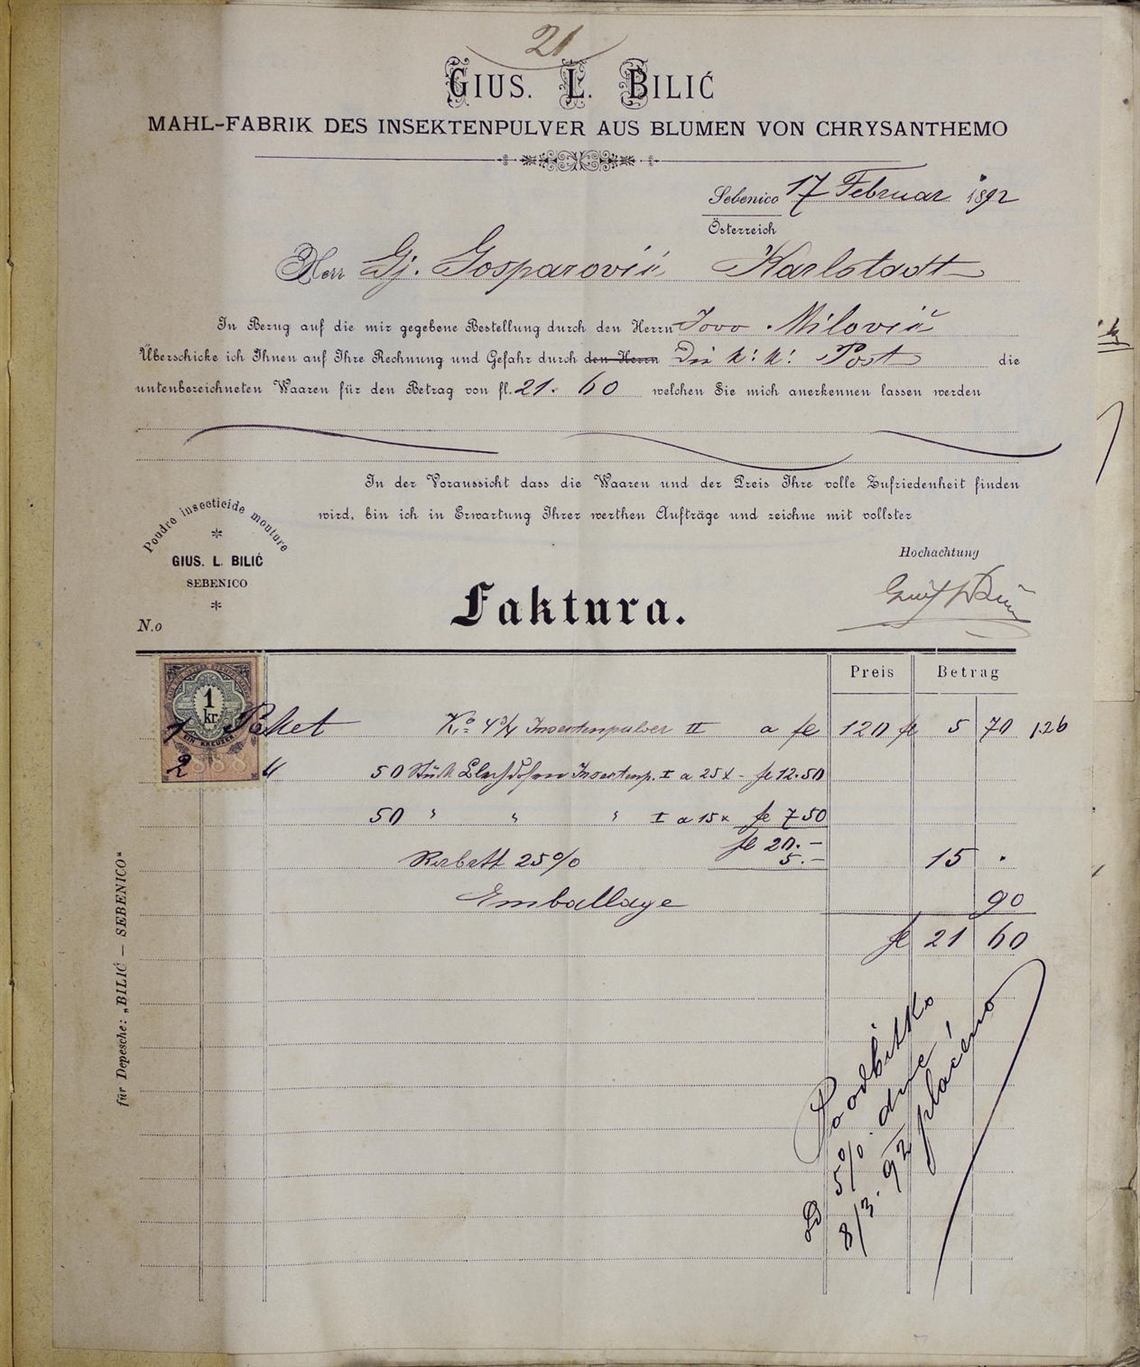 21
GIUS. L. BILIĆ
MAHL-FABRIK DES INSEKTENPULVER AUS BLUMEN VON CHRYSANTHEMO
Sebenico 17 Februar 1892
Österreich
Herr Gj. Gosparović Karlstadt
In Bezug auf die mir gegebene Bestellung durch den Herrn Jovo Milović
Überschicke ich Ihnen auf Ihre Rechnung und Gefahr durch den Herrn Die k: k: Post die
untenbezeichneten Waaren für den Betrag von fl. 21. 60 welchen Sie mich anerkennen lassen werden
In der Voraussicht dass die Waaren und der Preis Ihre volle Zufriedenheit finden
wird, bin ich in Erwartung Ihrer werthen Aufträge und zeichne mit vollster
Hochachtung
Poudre insecticide mouture
GIUS. L. BILIĆ
SEBENICO
N.o
Faktura.
Preis Betrag
1 kr.
EIN KREUZER
1888
1 Paket Ko 4¾ Insectenpulver II a fl 120 fl 5 70 126
2 " 50 Stück Blechdosen Insectenp. I a 25 x - fl 12.50
50 " " " I a 15 x fl 7 50
fl 20.-
Rabatt 25% 5.- 15 .
Emballage 90
fl 21 60
Po odbitko
5% dne
8/3. 92 plaćeno
für Depesche: „BILIĆ — SEBENICO"